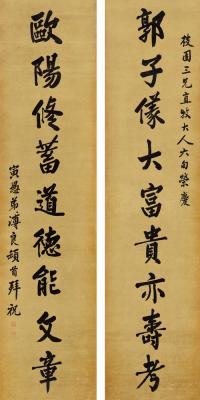 園三兄直牧大人六旬榮慶
郭子儀大富貴亦壽考
歐陽修蓄道德能文章
寅愚弟溥良頓首拜祝